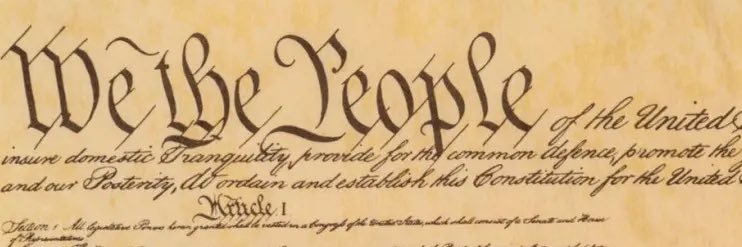 We the People of the United
insure domestic Tranquility, provide for the common defence, promote the
and our Posterity, do ordain and establish this Constitution for the United
Article I
Section 1 All legislative Powers herein granted shall be vested in a Congress of the United States, which shall consist of a Senate and House
of Representatives